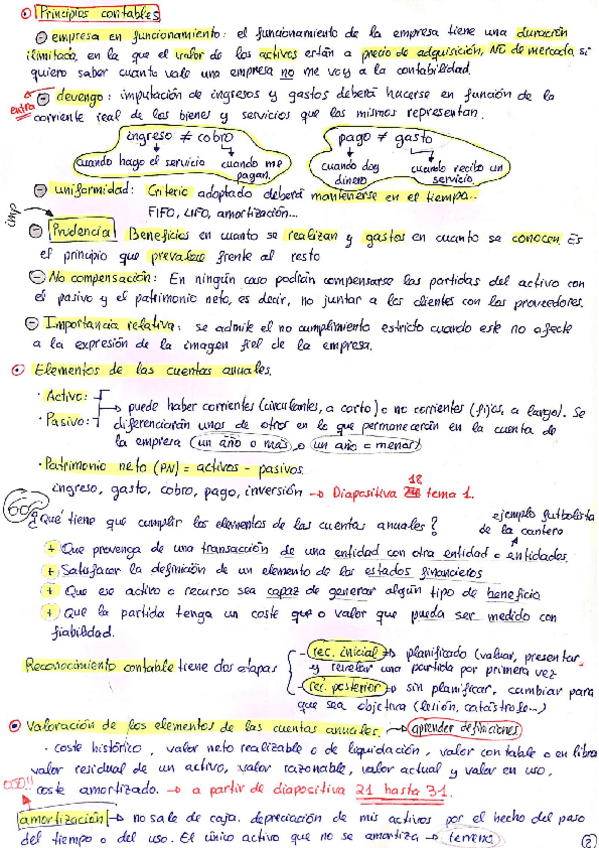 Principios contables
empresa en funcionamiento: el funcionamiento de la empresa tiene una duración
ilimitada, en la que el valor de los activos están a precio de adquisición, NO de mercado, si
quiero saber cuanto vale una empresa no me voy a la contabilidad.
devengo: imputación de ingresos y gastos deberá hacerse en función de la
entra
corriente real de los bienes y servicios que los mismos representan.
ingreso ≠ cobro
pago ≠ gasto
cuando hago el servicio
cuando me
pagan.
cuando doy
dinero
cuando recibo un
servicio.
uniformidad: Criterio adoptado deberá mantenerse en el tiempo...
FIFO, LIFO, amortización...
imp
Prudencia Beneficios en cuanto se realizan y gastos en cuanto se conocen. Es
el principio que prevalece frente al resto
No compensación: En ningún caso podrían compensarse las partidas del activo con
el pasivo y el patrimonio neto, es decir, no juntar a los clientes con los proveedores.
Importancia relativa: se admite el no cumplimiento estricto cuando este no afecte
a la expresión de la imagen fiel de la empresa.
Elementos de las cuentas anuales.
· Activo:
· Pasivo:
→ puede haber corrientes (circulantes, a corto) o no corrientes (fijos, a largo). Se
diferenciarán unos de otros en lo que permanecerán en la cuenta de
la empresa (un año o más, o un año o menos)
· Patrimonio neto (PN) = activos - pasivos.
ingreso, gasto, cobro, pago, inversión → Diapositiva 18 tema 1.
¿Qué tiene que cumplir los elementos de las cuentas anuales?
ejemplo futbolista
de la cantera
+ Que provenga de una transacción de una entidad con otra entidad o entidades.
+ Satisfacer la definición de un elemento de los estados financieros
+ Que ese activo o recurso sea capaz de generar algún tipo de beneficio
+ Que la partida tenga un coste que o valor que pueda ser medido con
fiabilidad.
Reconocimiento contable tiene dos etapas
- rec. inicial → planificado (valuar, presentar
y revelar una partida por primera vez
- rec. posterior → sin planificar, cambiar para
que sea objetiva (lesión, catástrofe...)
Valoración de los elementos de las cuentas anuales. → aprender definiciones
· coste histórico, valor neto realizable o de liquidación, valor contable o en libros
valor residual de un activo, valor razonable, valor actual y valor en uso,
coste amortizado. → a partir de diapositiva 21 hasta 31.
amortización → no sale de caja. depreciación de mis activos por el hecho del paso
del tiempo o del uso. El único activo que no se amortiza → terreno
2